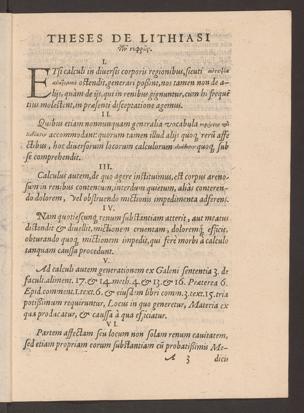 THESES DE LITHIASI
I.
ETsi calculi in diversis corporis regionibus, sicuti
ostendit, generari possint, nos tamen non de a-
lijs, quàm de ijs, qui in renibus gignuntur, cum hi sæpe
tius molestent, in præsenti disceptatione agemus.
II.
Quibus etiam nonnunquam generalia vocabula
accommodant: quorum tamen illud alijs quoq; rerū affe
ctibus, hoc diversorum locorum calculorum quoq; sub
se comprehendit.
III.
Calculus autem, de quo agere instituimus, est corpus areno-
sum in renibus contentum, interdum quietum, aliàs conteren-
do dolorem, vel obstruendo mictionis impedimenta adferens.
IV.
Nam quotiescunq; renum substantiam atterit, aut meatus
distendit & divellit, mictionem cruentam, doloremq; efficit.
obturando quoq; mictionem impedit, qui ferè morbi à calculo
tanquam caussa procedunt.
V.
Ad calculi autem generationem ex Galeni sententia 3. de
facult. aliment. 17. & 14. meth. 4. & 13. & 16. Præterea 6.
Epid. comment. 1. text. 6. & eiusdem libri comm. 3. text. 15. tria
potißimum requiruntur, Locus in quo generetur, Materia ex
qua producatur, & caussa à qua efficiatur.
VI.
Partem affectam seu locum non solam renum cavitatem,
sed etiam propriam eorum substantiam cū probatißimis Me-
A 3 dicis